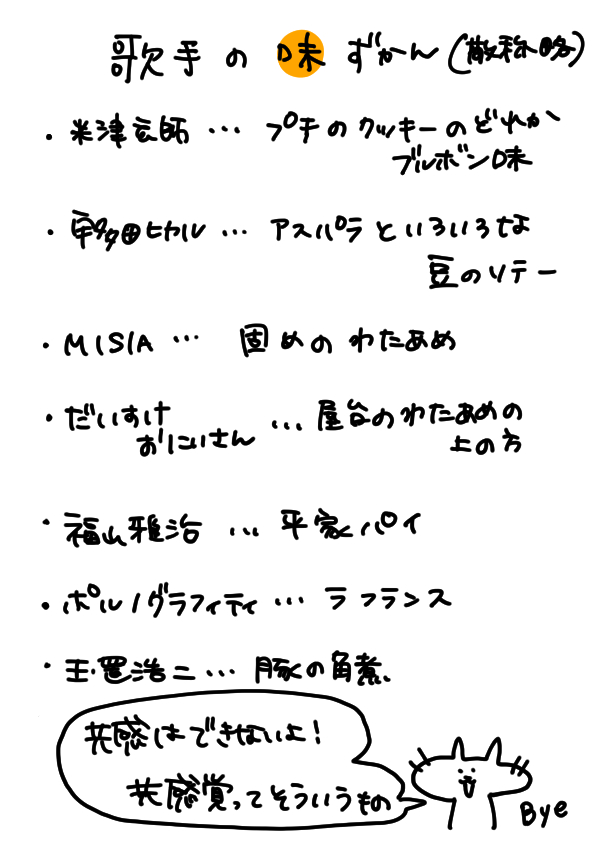 歌手の味ずかん(敬称略)
・米津玄師…プチのクッキーのどれか
ブルボン味
・宇多田ヒカル…アスパラといろいろな
豆のソテー
・MISIA…固めのわたあめ
・だいすけ
おにいさん…屋台のわたあめの
上の方
・福山雅治…平家パイ
・ポルノグラフィティ…ラフランス
・玉置浩二…豚の角煮、
共感はできないよ!
共感覚ってそういうもの
Bye